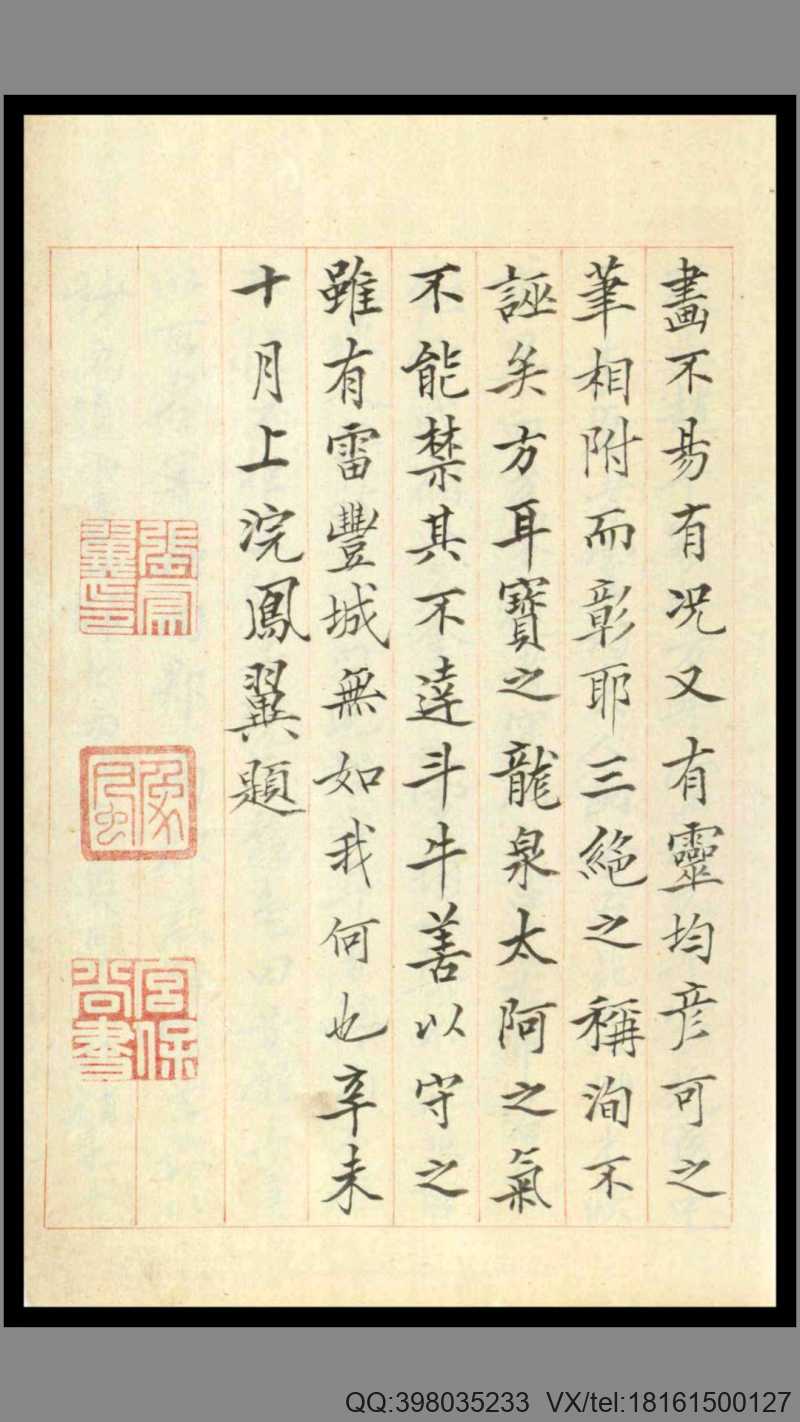 畫不易有况又有靈均彦可之
筆相附而彰耶三絶之稱洵不
誣矣方耳寳之龍泉太阿之氣
不能禁其不達斗牛善以守之
雖有雷豐城無如我何也辛未
十月上浣鳳翼題
張鳳翼印
宮保尚書
QQ:398035233 VX/tel:18161500127